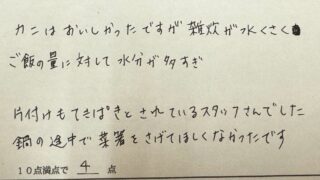 カニはおいしかったですが雑炊が水くさく
ご飯の量に対して水分が多すぎ
片付けもてきぱきとされているスタッフさんでした
鍋の途中で菜箸をさげてほしくなかったです
10点満点で 4 点